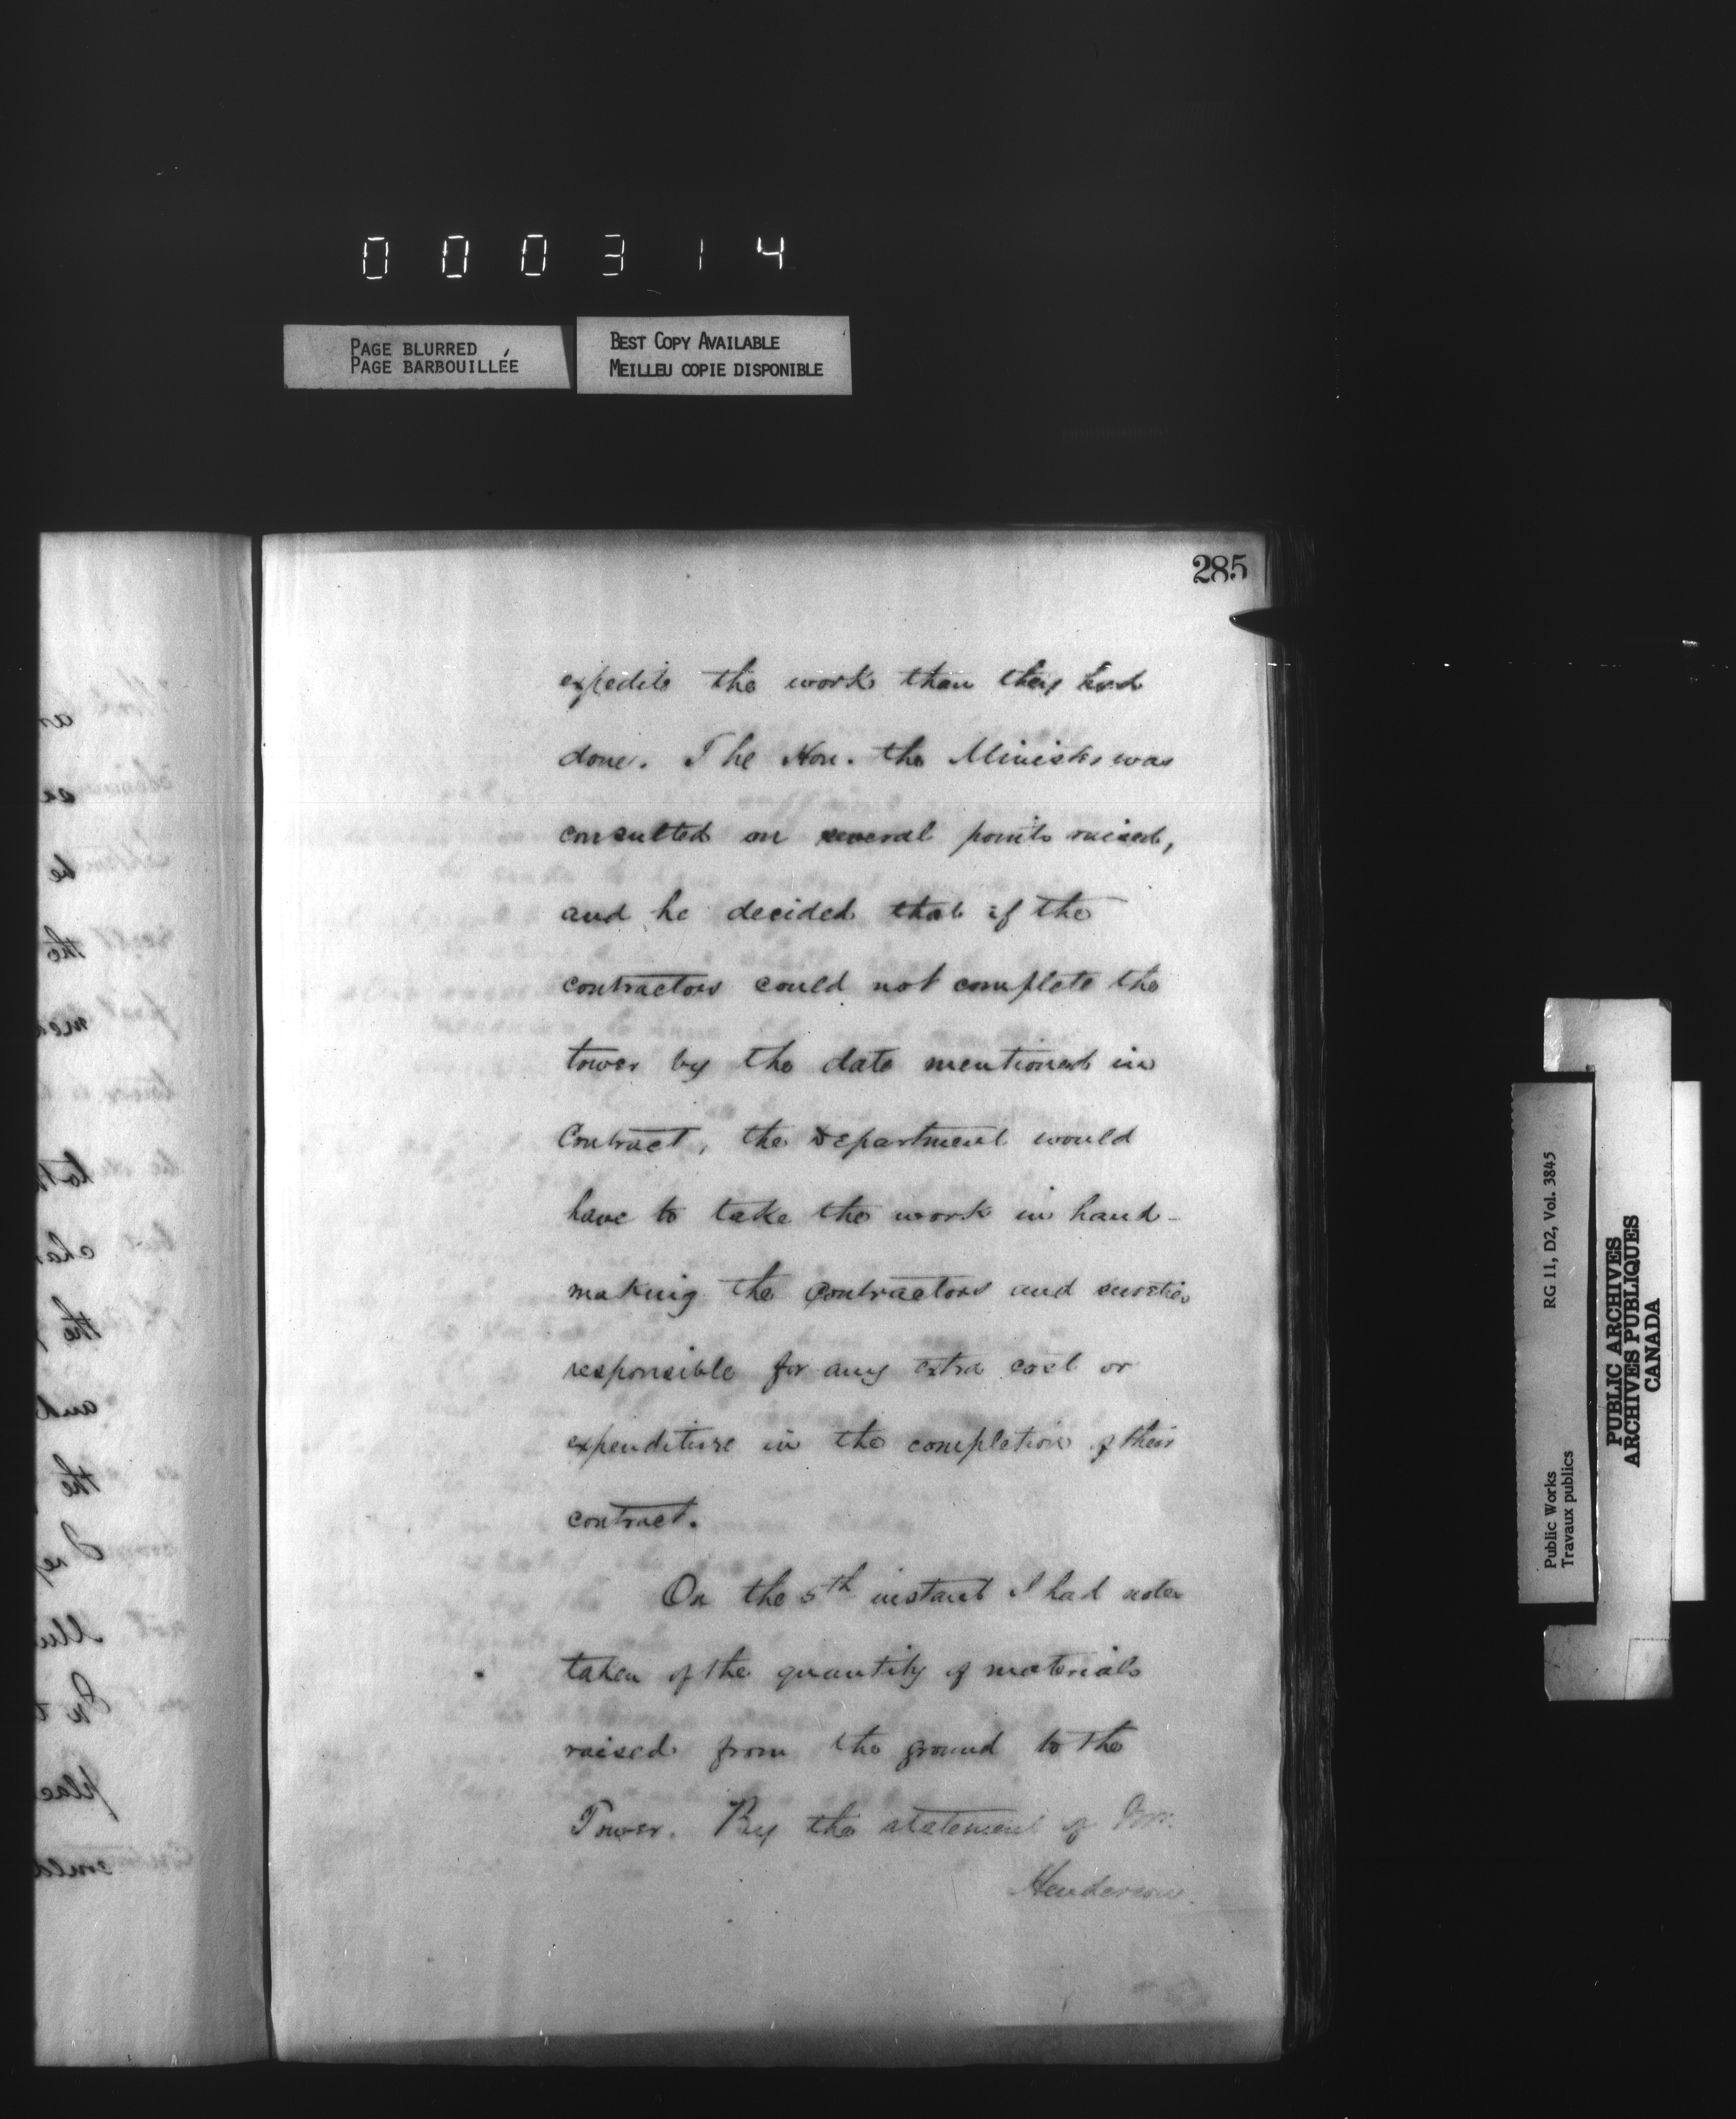 000314
PAGE BLURRED
PAGE BARBOUILLÉE
BEST COPY AVAILABLE
MEILLEU COPIE DISPONIBLE
285
expedite the work than they had
done. The Hon. the Minister was
consulted on several points raised,
and he decided that if the
contractors could not complete the
tower by the date mentioned in
Contract, the Department would
have to take the work in hand -
making the contractors and sureties
responsible for any extra cost or
expenditure in the completion of their
contract.
On the 5th instant I had notes
taken of the quantity of materials
raised from the ground to the
Tower. By the statement of Mr.
Henderson
Public Works
Travaux publics
RG 11, D2, Vol. 3845
PUBLIC ARCHIVES
ARCHIVES PUBLIQUES
CANADA